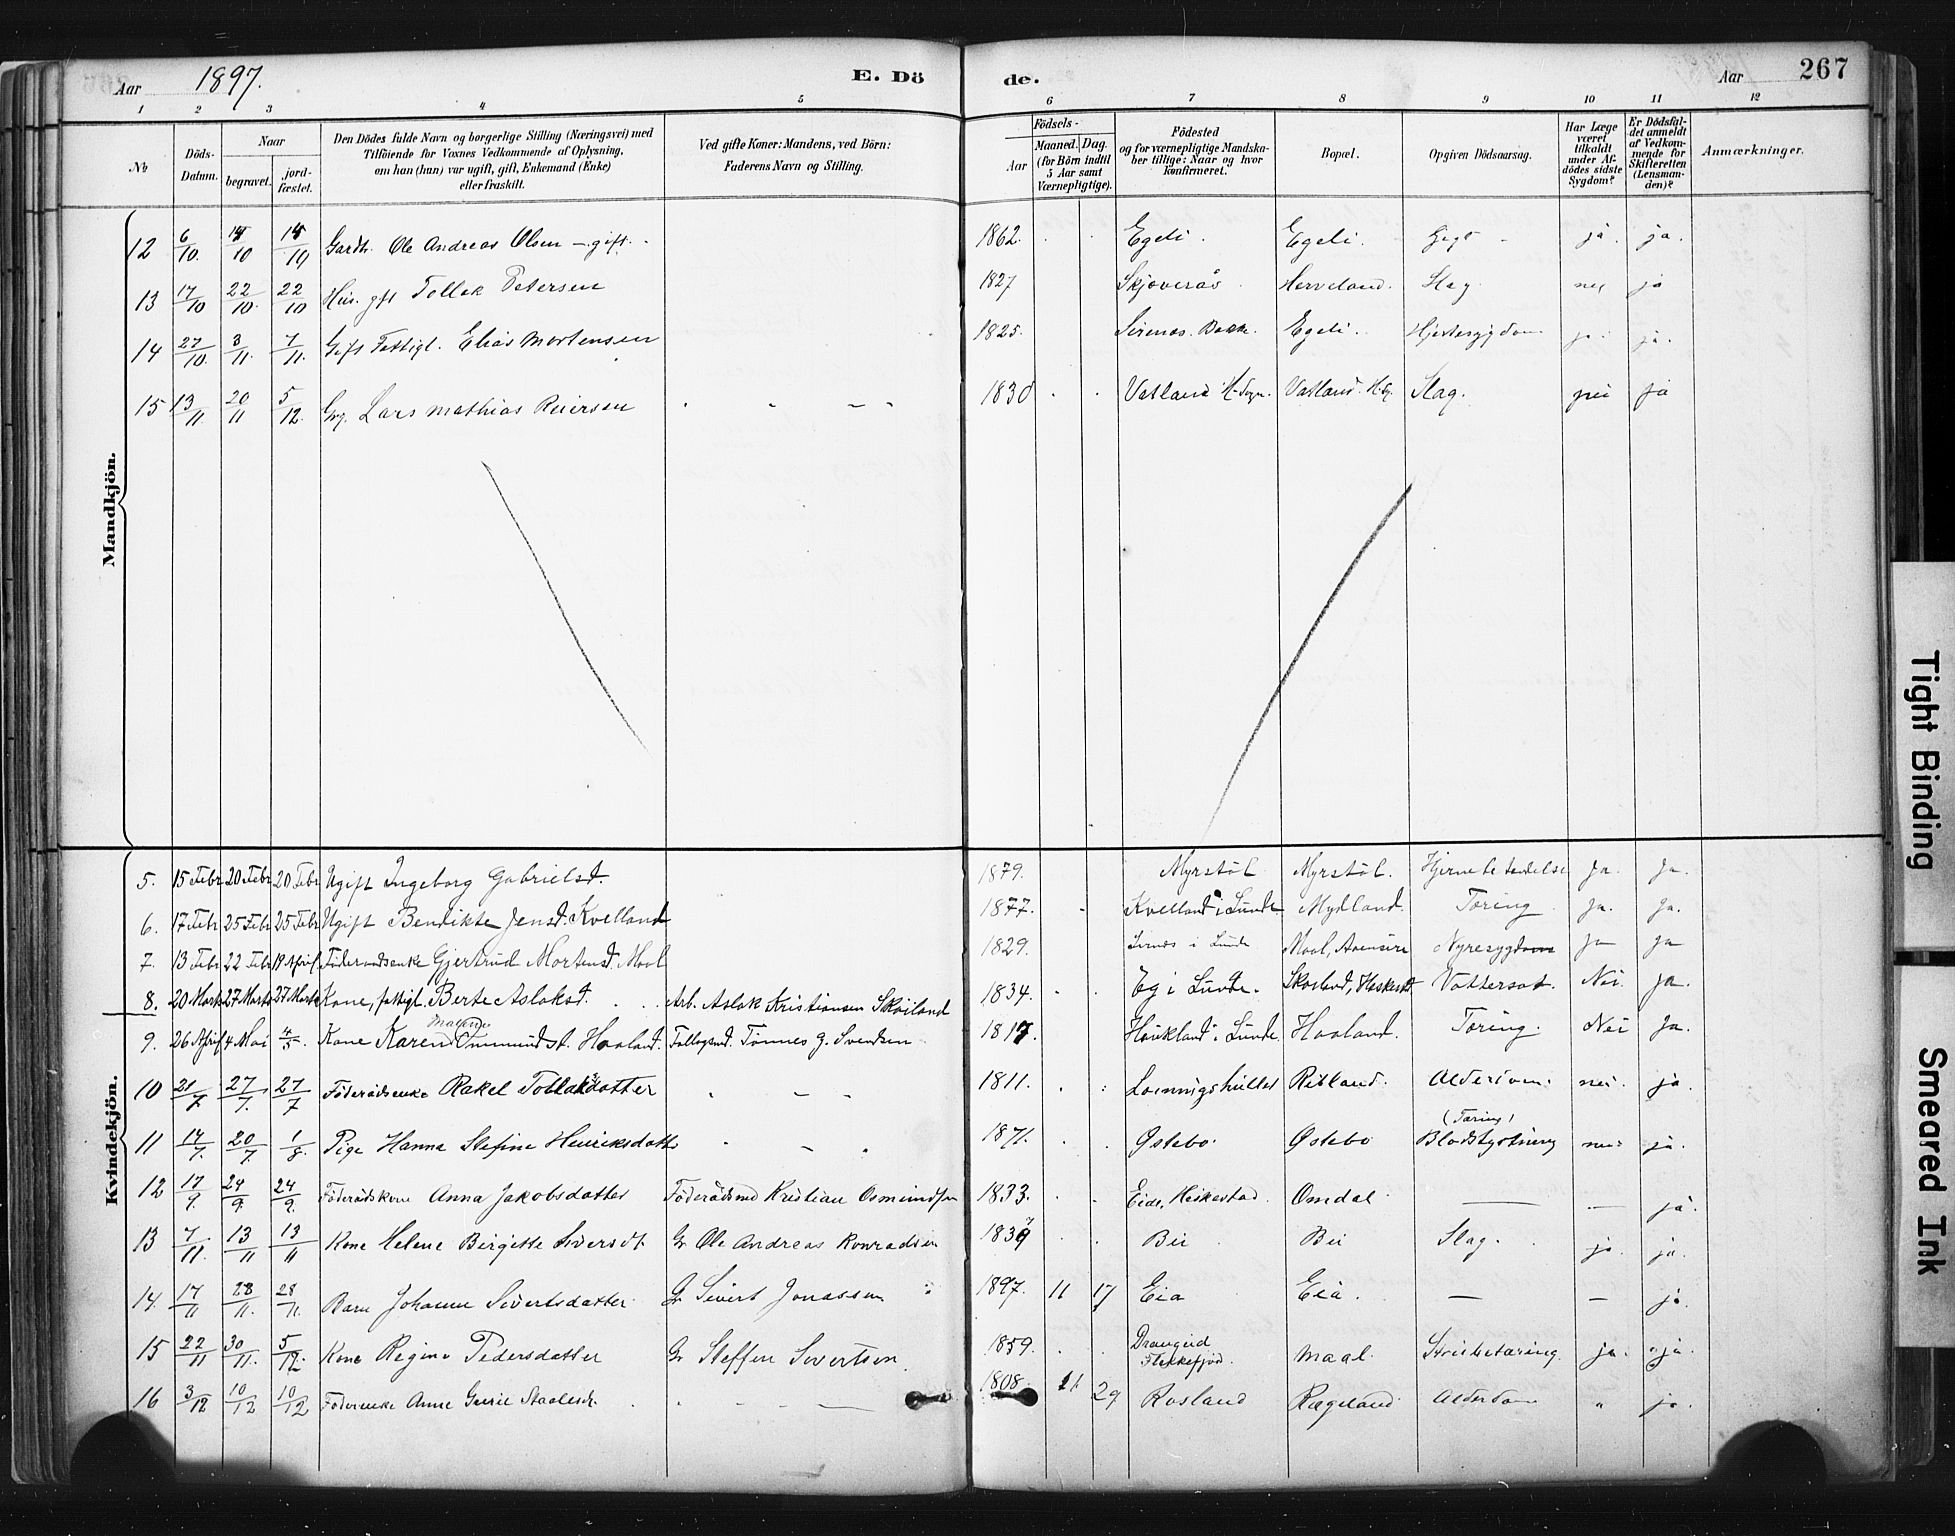 Aar 1897. E. Dö de. Aar 267
1 2 3 4 5 6 7 8 9 10 11 12
No
Döds-Datum.
Naar
begravet.
jord-fæstet.
Den Dödes fulde Navn og borgerlige Stilling (Næringsvei) med
Tilföiende for Voxnes Vedkommende af Oplysning,
om han (hun) var ugift, gift, Enkemand (Enke)
eller fraskilt.
Ved gifte Koner: Mandens, ved Börn:
Faderens Navn og Stilling.
Födsels-
Aar
Maaned. Dag.
(for Börn indtil
5 Aar samt
Værnepligtige).
Födested
og for værnepligtige Mandska-
ber tillige: Naar og hvor
konfirmeret.
Bopæl.
Opgiven Dödsaarsag.
Har Læge
været
tilkaldt
under Af-
dödes sidste
Sygdom?
Er Dödsfal-
det anmeldt
af Vedkom-
mende for
Skifteretten
(Lensman-
den)?
Anmærkninger.
Mandkjön.
12 6/10 /10 /10 Gardbr. Ole Andreas Olsen – gift. 1862. Egeli. Egeli. Gigt ja. ja.
13 17/10 22/10 22/10 Hus. gft Tollak Petersen 1827 Skjæverås Herveland. Slag nei ja
14 27/10. 3/11. 7/11. Gift Fattigl. Elias Mortensen 1825. Sirenæs. Bakk. Egeli. Hjertesygdom ja. ja.
15 13/11. 20/11 5/12. Lars Mathias Reiersen 1830 Vatland H-Sogn. Vatland H-Sg. Slag. nei ja
Kvindekjön.
5. 15 Febr 20 Febr 20 Febr Ugift Ingeborg Gabrielsd. 1879. Myrstöl Myrstöl. Hjernebetændelse Ja. Ja.
6. 17 Febr 25 Febr 25 Febr Ugift Bendikte Jensd. Kvelland 1877. Kvelland i Lunde Mydland. Tæring Ja. Ja.
7. 13 Febr 22 Febr 19 April Föderaadsenke Gjertrud Mortensd. Moal 1829. Sirnes i Lunde Moal, Aaensire Nyresygdom ja ja
8. 20 Marts 27 Marts 27 Marts Kone, fattigl. Berte Aslaksd. Arb. Aslak Kristiansen Skåiland 1834. Eg i Lunde. Skaaland, Heskestd Vattersot. Nei. ja.
9. 26 April 4 Mai 4/5 Kone Karen Malene Ommundsd. Haaland. Fattigund. Tönnes G. Svendsen 1817. Haukland i Lunde Haaland. Tæring. Nei Ja.
10 21/7. 27/7. 27/7 Föderådsenke Rakel Tollaksdatter 1811. Rebland. Alderdom. nei. ja.
11 14/7. 20/7 1/8. Pige Hanna Stefine Henriksdatter 1871. Østebø. Østebø (Tæring) Blodstyrtning nei ja.
12 17/9. 24/9. 24/9. Föderådskone Anna Jakobsdatter Föderådsmd Kristian Osmundsen 1833. Eide, Heskestad. Omdal — — ja.
13 7/11. 13/11 13/11 Kone Helene Birgitte Siversdt. G. Ole Andreas Konradsen 1839 Bei Bei Slag. ja. ja.
14. 17/11 28/11. 28/11. Barn Johanne Sivertsdatter G. Sivert Jonassen 1897. 11 17 Eia Eia. — — ja.
15 22/11 30/11. 5/12. Kone Regine Pedersdatter G. Steffen Sivertsen 1859. Drangeid Flekkefjord. Maal. Strubetæring. ja. ja.
16 3/12 10/12 10/12 Föderenke Anne Gurie Staalesdr. 1808. 11. 29 Rosland Rægeland Alderdom " ja.
Tight Binding
Smeared Ink